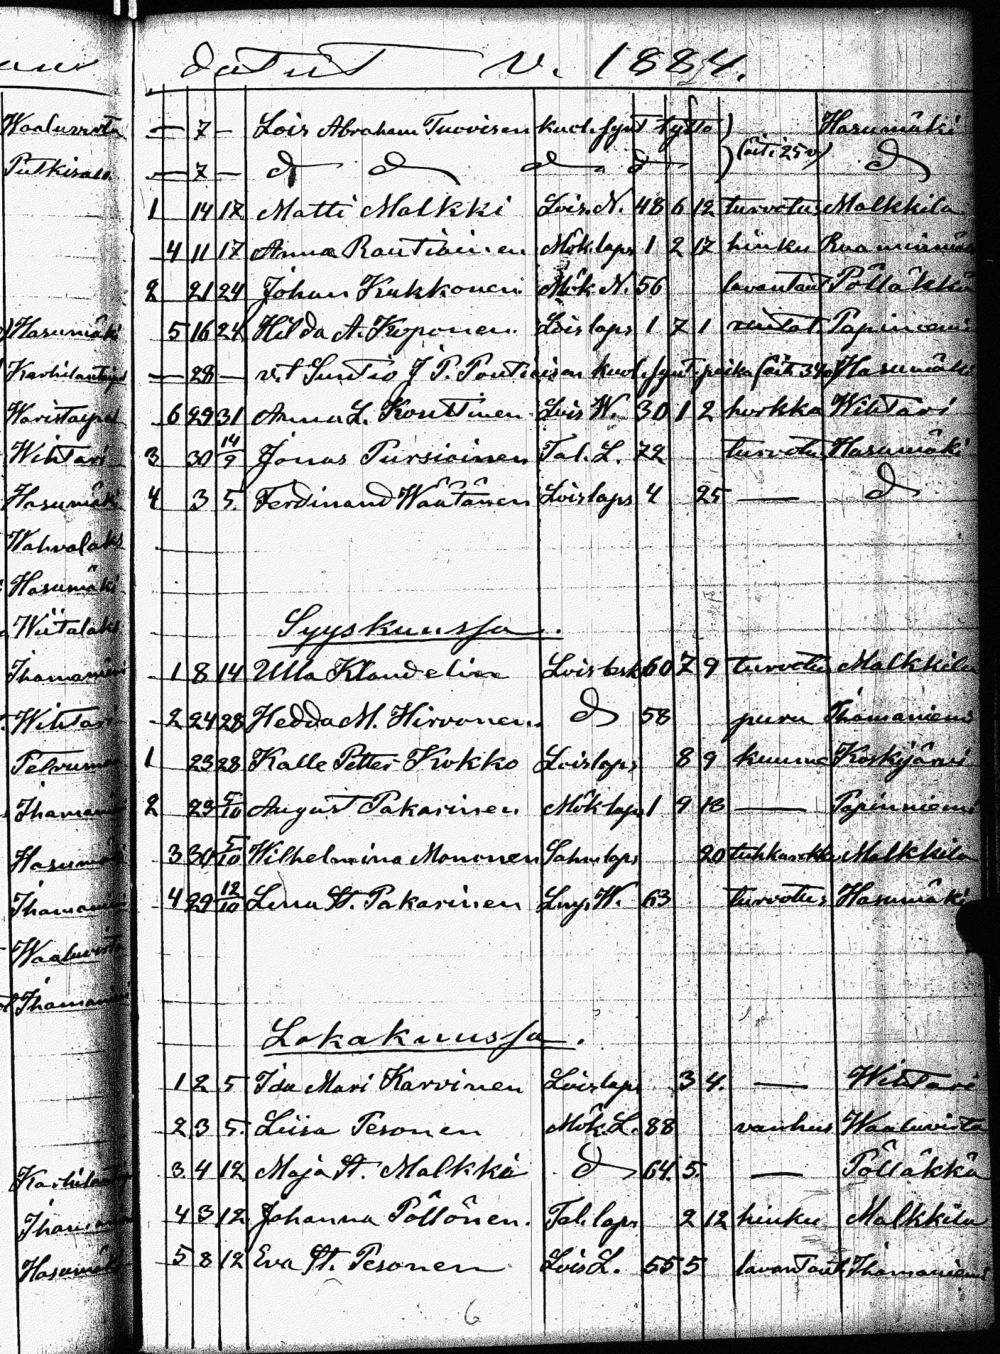 datut V. 1884.
— 7 — Lois Abraham Tuovisen kuol. synt tyttö Hasumäki
— 7 — d d d d (äiti 25 v) d
1 14 17 Matti Malkki Lois. N. 48 6 12 turvotus Malkkila
4 11 17 Anna Rautiainen Mök. laps 1 2 17 hinku
2 21 24 Johan Kukkonen Mök. N. 56 lavantaut Pölläkkä
5 16 24 Hilda A. Koponen Loislaps 1 7 1 Papinniemi
— 28 — v.t Suntio J. P. Pontiaisen kuol. synt poika (äiti 34 v) Hasumäki
6 29 31 Anna L. Konttinen Lois W. 30 1 2 horkka Wihtari
3 30 14/9 Jonas Pursiainen Tal. L. 72 turvotus Hasumäki
4 3 5. Ferdinand Wäätänen Loislaps 4 25 — d
Syyskuussa.
1 8 14 Ulla Klaudelin Lois lesk 60 7 9 turvotus Malkkila
2 24 28 Hedda M. Hirvonen d 58 puru Ihamaniemi
1 23 28 Kalle Petter Kokko Loislaps 8 9 kuume Koskijärvi
2 23 5/10 August Pakarinen Mök laps 1 9 18 — Papinniemi
3 30 5/10 Wilhelmina Mononen laps 20 tuhkarokko Malkkila
4 29 12/10 Lena St. Pakarinen W. 63 turvotus Hasumäki
Lokakuussa.
1 2 5 Ida Mari Karvinen Loislaps 3 4. — Wihtari
2 3 5. Liisa Pesonen Mök. L. 88 vanhus Waaluvirta
3. 4 12 Maja St. Malkki d 64. 5. — Pölläkkä
4 3 12 Johanna Pöllönen. Tal. laps 2 12 hinku Malkkila
5 8 12 Eva St. Pesonen Lois L. 55 5 lavantaut. Ihamaniemi
6
Waaluvirta
Putkisalo
Hasumäki
Karhilantaipal
Haristaipal
Wihtari
Hasumäki
Wahvalaks
Hasumäki
Wiitalaks
Ihamaniemi
Wihtari
Ihamaniemi
Hasumäki
Ihamaniemi
Waaluvirta
Ihamaniemi
Ihamaniemi
Hasumäki